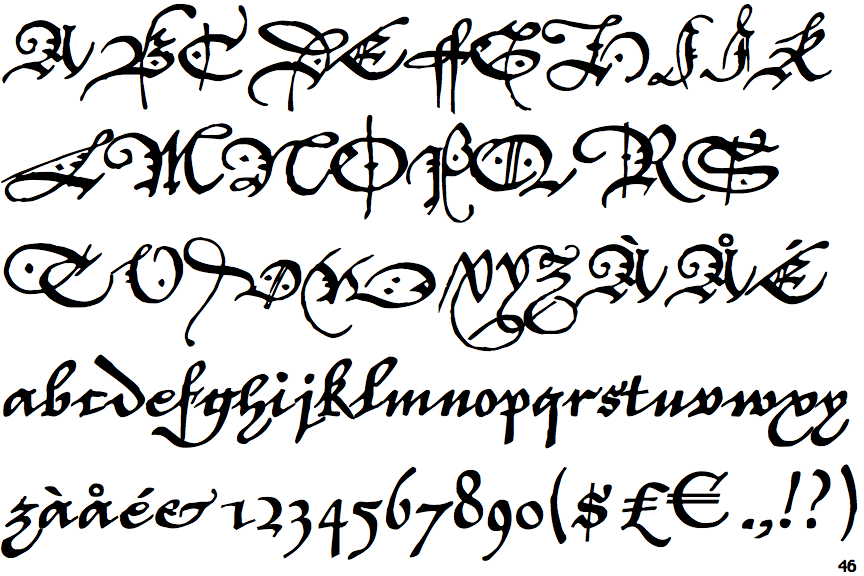 ABCDEFGHIJK
LMNOPQRS
TUVWXYZÀÅÉ
abcdefghijklmnopqrstuvwxy
zàåé&1234567890($£€.,!?)
46